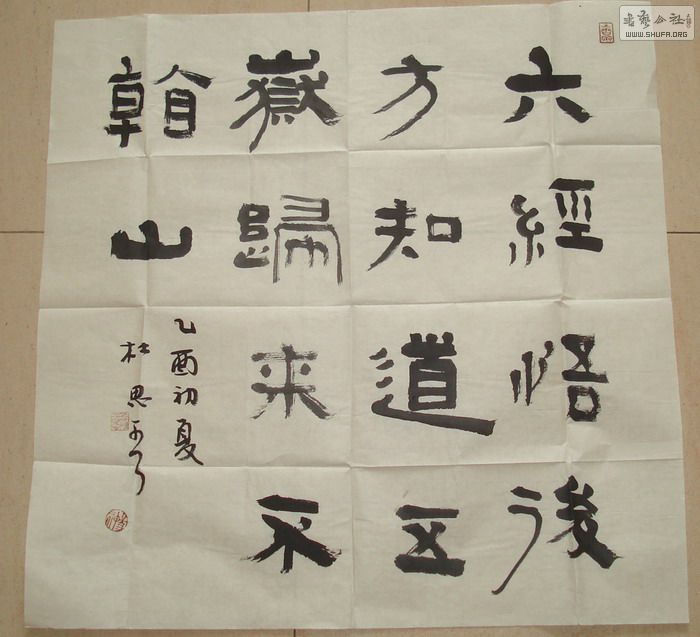 六經悟後
方知道五
嶽歸來不
山
乙酉初夏
杜思
書藝公社
WWW.SHUFA.ORG